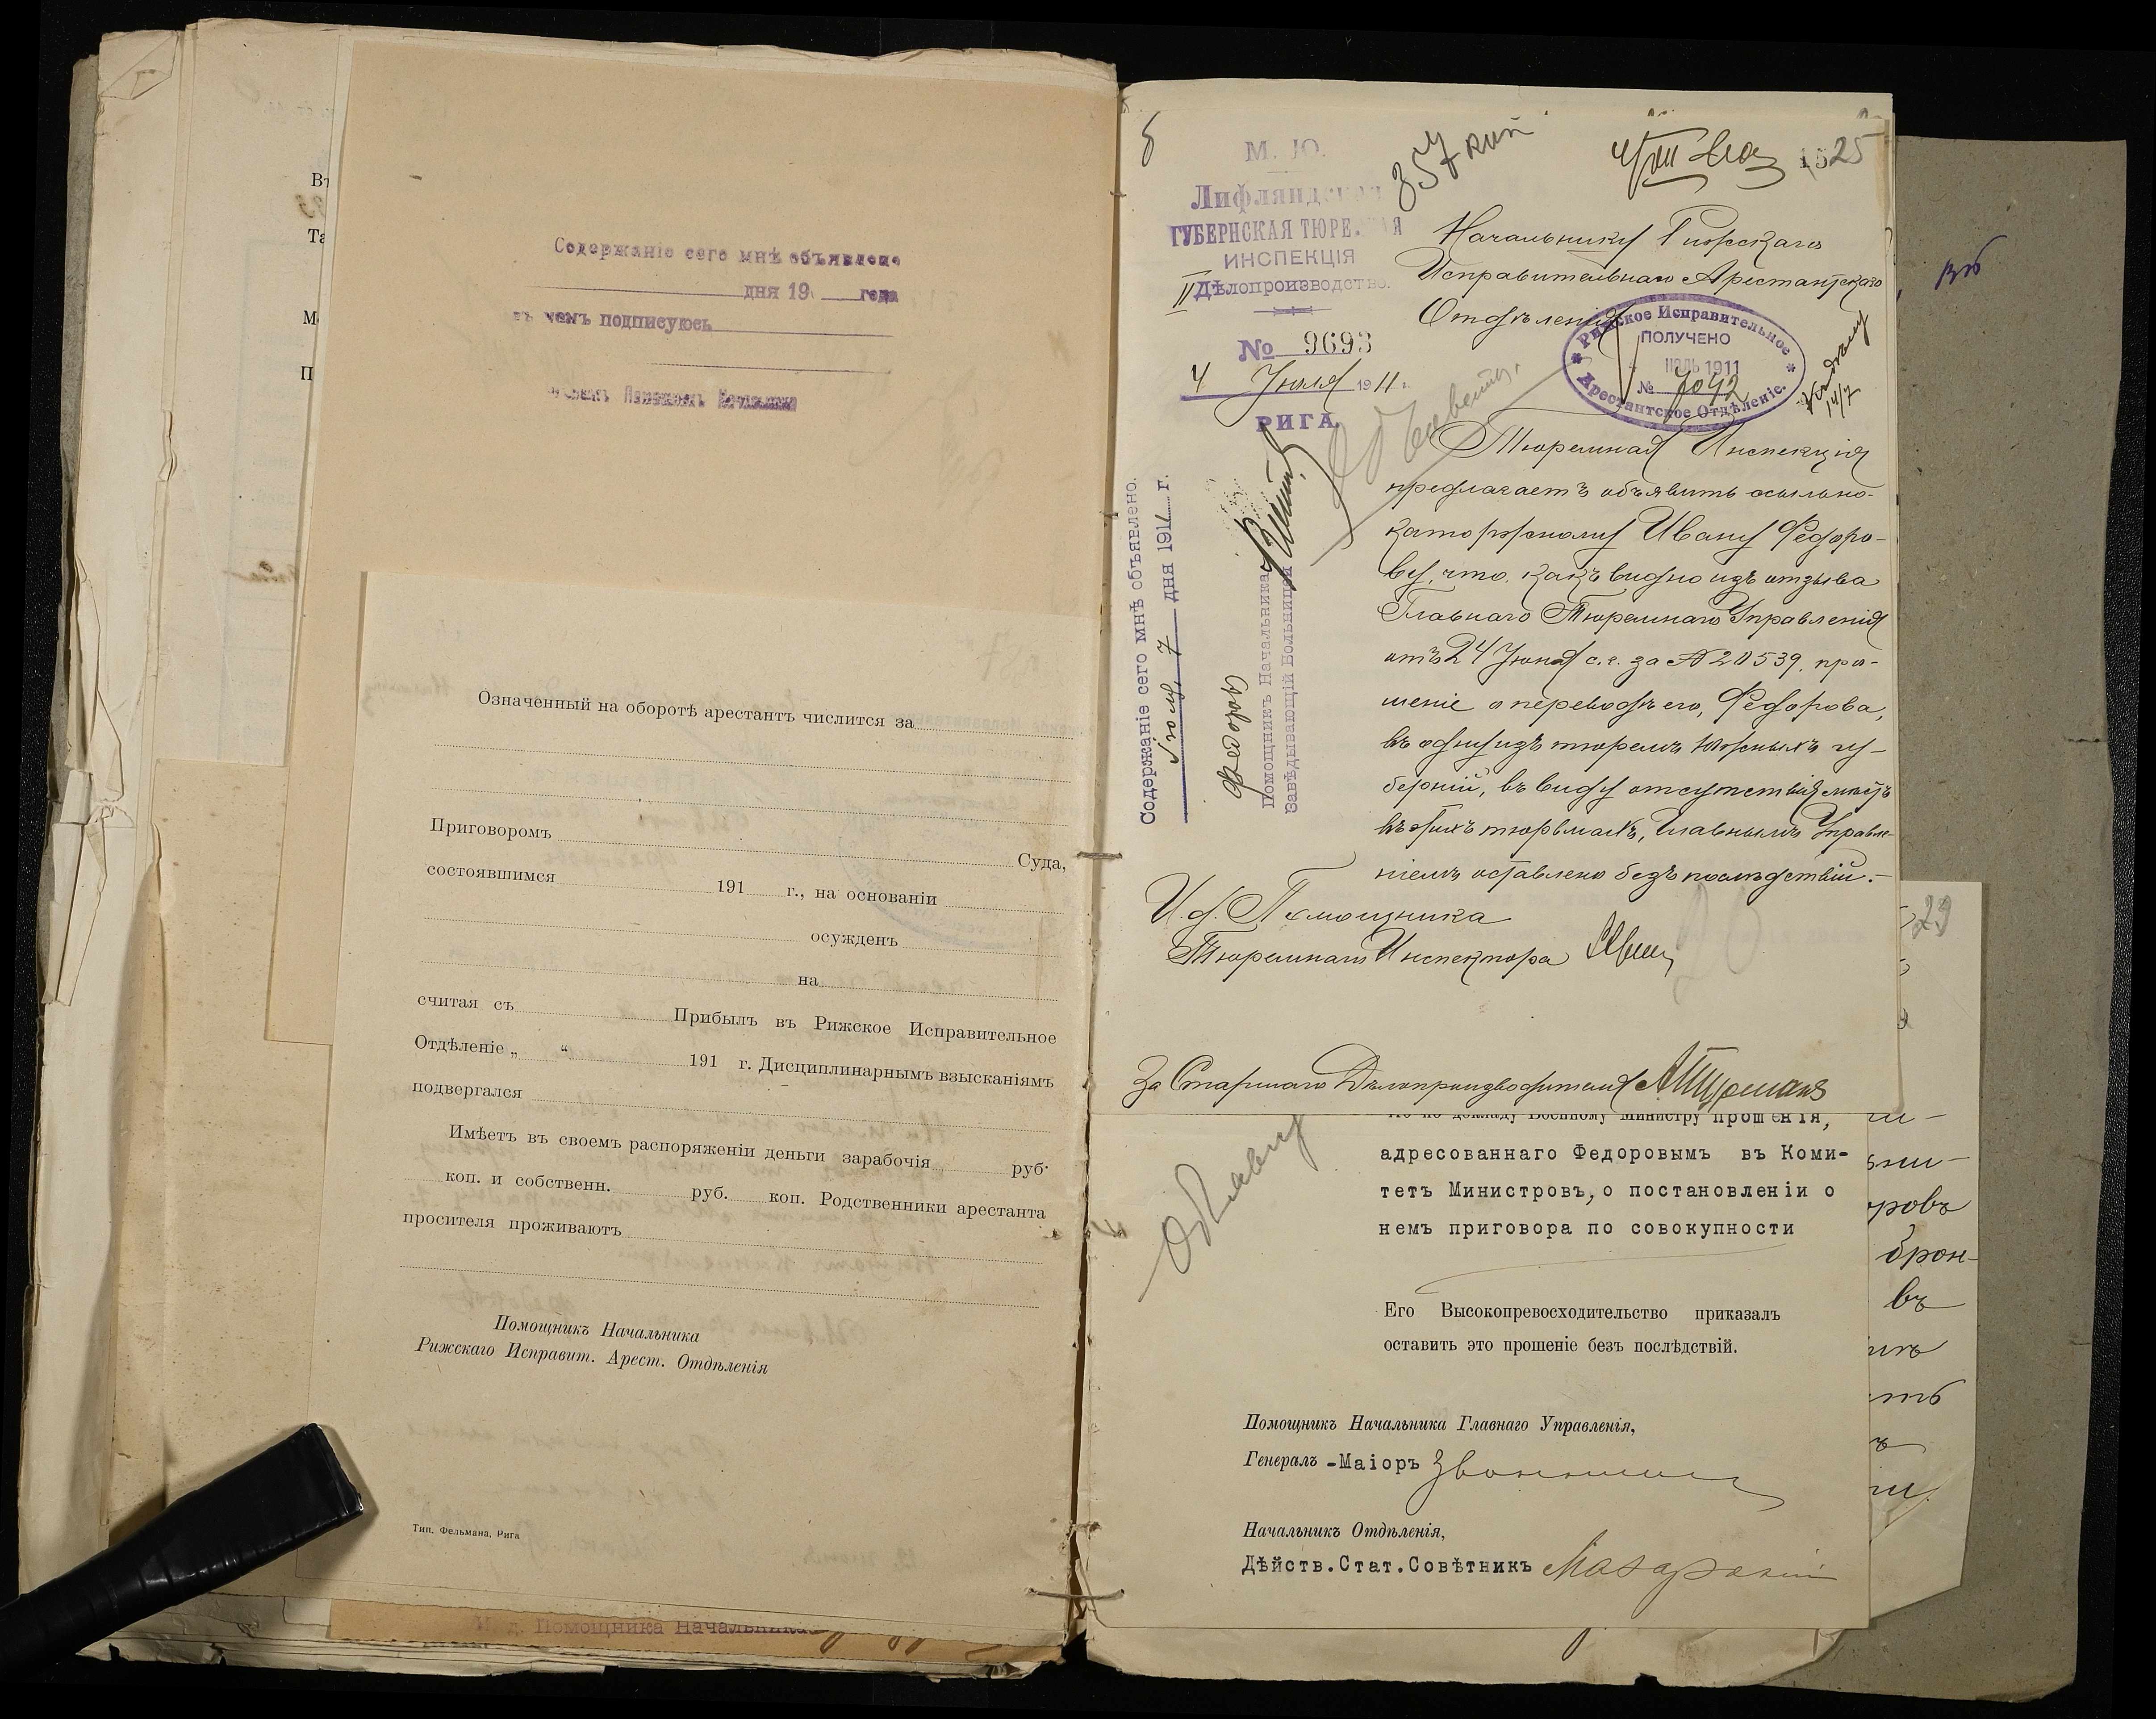 Содержаніе сего мнѣ объявлено
дня 19 года
въ чемъ подписуюсь
Означенный на оборотѣ арестантъ числится за
Приговоромъ
Суда,
состоявшимся 191 г., на основаніи
осужденъ
на
считая съ Прибылъ въ Рижское Исправительное
Отдѣленіе „ “ 191 г. Дисциплинарнымъ взысканіямъ
подвергался
Имѣетъ въ своемъ распоряженіи деньги зарабочія руб.
коп. и собственн. руб. коп. Родственники арестанта
просителя проживаютъ
Помощникъ Начальника
Рижскаго Исправит. Арест. Отдѣленія
Тип. Фельмана, Рига
Помощника Начальника
М. Ю.
Лифляндская
ГУБЕРНСКАЯ ТЮРЕМНАЯ
ИНСПЕКЦІЯ
II Дѣлопроизводство.
№ 9693
4 Июля 1911 г.
РИГА.
357
25
Начальнику Рижскаго
Исправительнаго Арестантскаго
Отдѣленія
Рижское Исправительное
ПОЛУЧЕНО
ІЮЛЬ 1911
№ 7042
Арестантское Отдѣленіе.
14/7
Объявить
Тюремная Инспекція
предлагаетъ объявить ссыльно-
каторжному Ивану Федоро-
ву, что, какъ видно изъ отзыва
Главнаго Тюремнаго Управленія
отъ 24 Июня с. г. за № 20539, про-
шеніе о переводѣ его, Федорова,
въ одну изъ тюремъ южныхъ гу-
берній, въ виду отсутствія мѣстъ
въ этихъ тюрьмахъ, Главнымъ Управле-
ніемъ оставлено безъ послѣдствій.-
И. д. Помощника
Тюремнаго Инспектора
За Старшаго Дѣлопроизводителя
Содержаніе сего мнѣ объявлено.
Іюля 7 дня 1911 г.
Федоровъ
Помощникъ Начальника
Завѣдывающій Больницей
но по докладу Военному Министру прошенія,
адресованнаго Федоровымъ въ Коми-
тетъ Министровъ, о постановленіи о
немъ приговора по совокупности
Его Высокопревосходительство приказалъ
оставить это прошеніе безъ послѣдствій.
Помощникъ Начальника Главнаго Управленія,
Генералъ-Маіоръ
Начальникъ Отдѣленія,
Дѣйств.Стат.Совѣтникъ
29